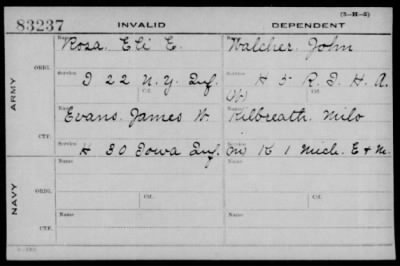 (3-H-5)
83237 INVALID DEPENDENT
ARMY
ORIG.
Name Roza. Eli E. Name Walcher. John
Service D 22 N.Y. Inf. Service H 5 R.I. H. A.
Ctf. Ctf.
CTF.
Name Evans. James W. Name (W) Kilbreath. Milo
Service H 30 Iowa Inf. Service (M) K 1 Mich. E & M.
NAVY
ORIG.
Name Name
Service Ctf. Service Ctf.
CTF.
Name Name
Service Service